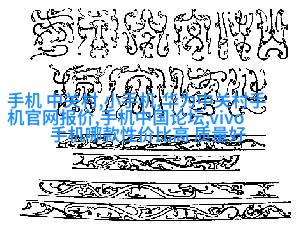 手机 中关村,小手机,华为中关村手
机官网报价,手机中国论坛,vivo
手机哪款性价比高,质量最好